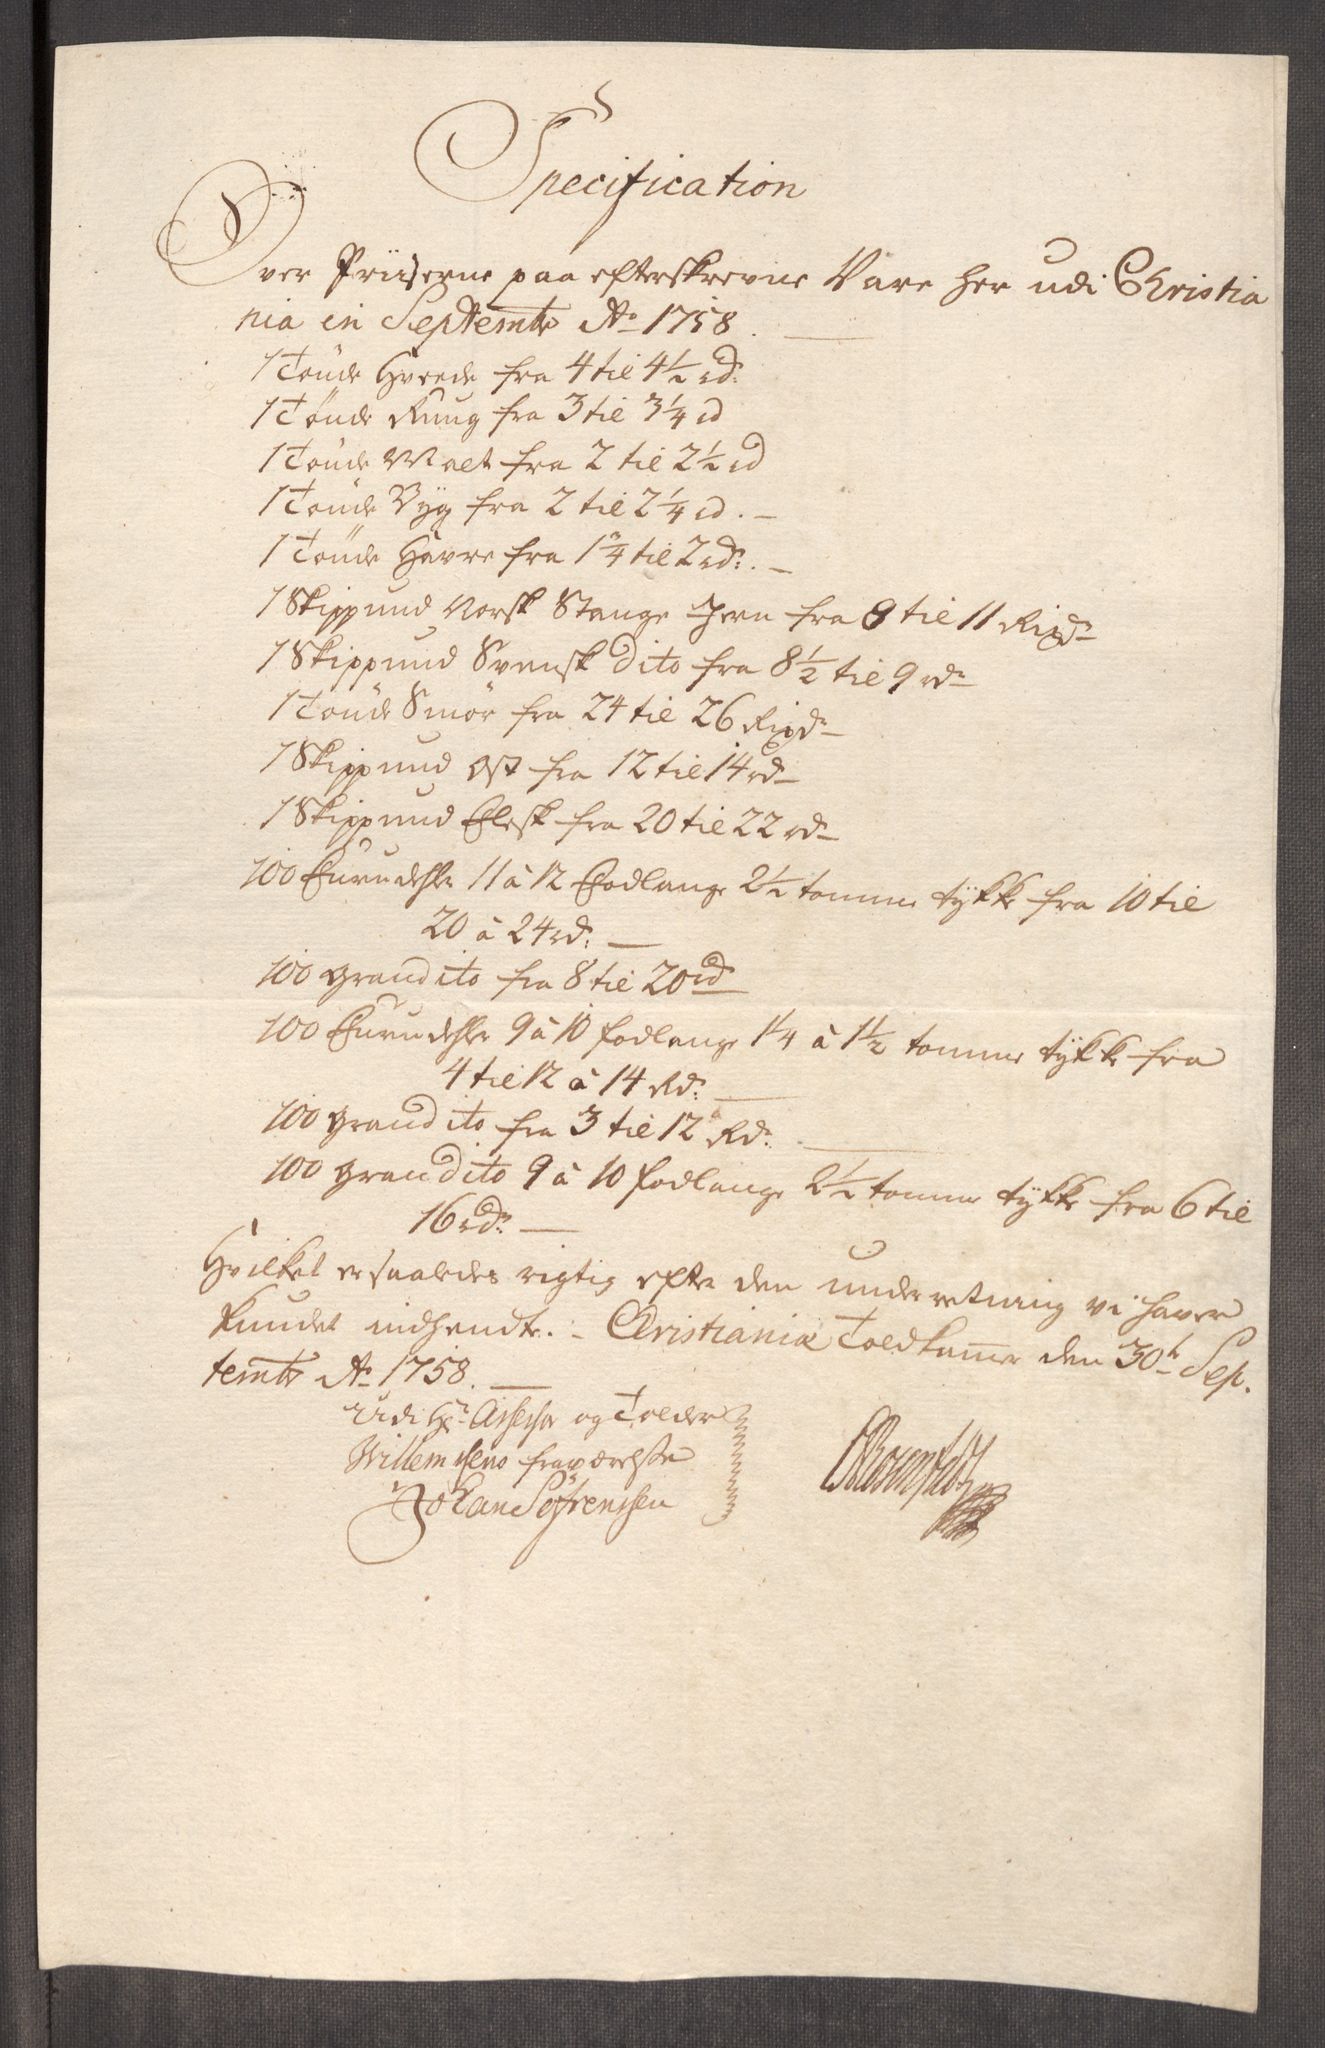 Specification
Over Priiserne paa efterskrevne Vare her udi Christia
nia in Septembr Ao 1758.
1 Tønde Hvede fra 4 til 4 1/2 rd:
1 Tønde Rug fra 3 til 3 1/4 rd
1 Tønde Malt fra 2 til 2 1/2 rd
1 Tønde Byg fra 2 til 2 1/4 rd.
1 Tønde Havre fra 1 3/4 til 2 rd:.
1 Skippund Norsk Stange Jern fra 8 til 11 Rixdr
1 Skippund Svensk dito fra 8 1/2 til 9 rdr
1 Tønde Smør fra 24 til 26 Rixdr
1 Skippund Ost fra 12 til 14 rd
1 Skippund Flesk fra 20 til 22 rdr
100 Furudehler 11 à 12 Fodlange 2 1/2 tomme tykke fra 10 til
20 à 24 rd:
100 Gran dito fra 8 til 20 rd
100 Furudehler 9 à 10 fodlange 1 1/4 à 1 1/2 tomme tykke fra
4 til 12 à 14 Rd:
100 Gran dito fra 3 til 12 Rd:.
100 Gran dito 9 à 10 fodlange 2 1/2 tomme tykke fra 6 til
16 rdr
Hvilket er saaledes rigtig efter den underretning vi haver
kundet indhendte. - Christianiæ Toldkammer den 30te Sep.
tembr Ao 1758.
Udi Hr Assessor og Tolder
Willemsens fraværelse
Johan Søfrenssen